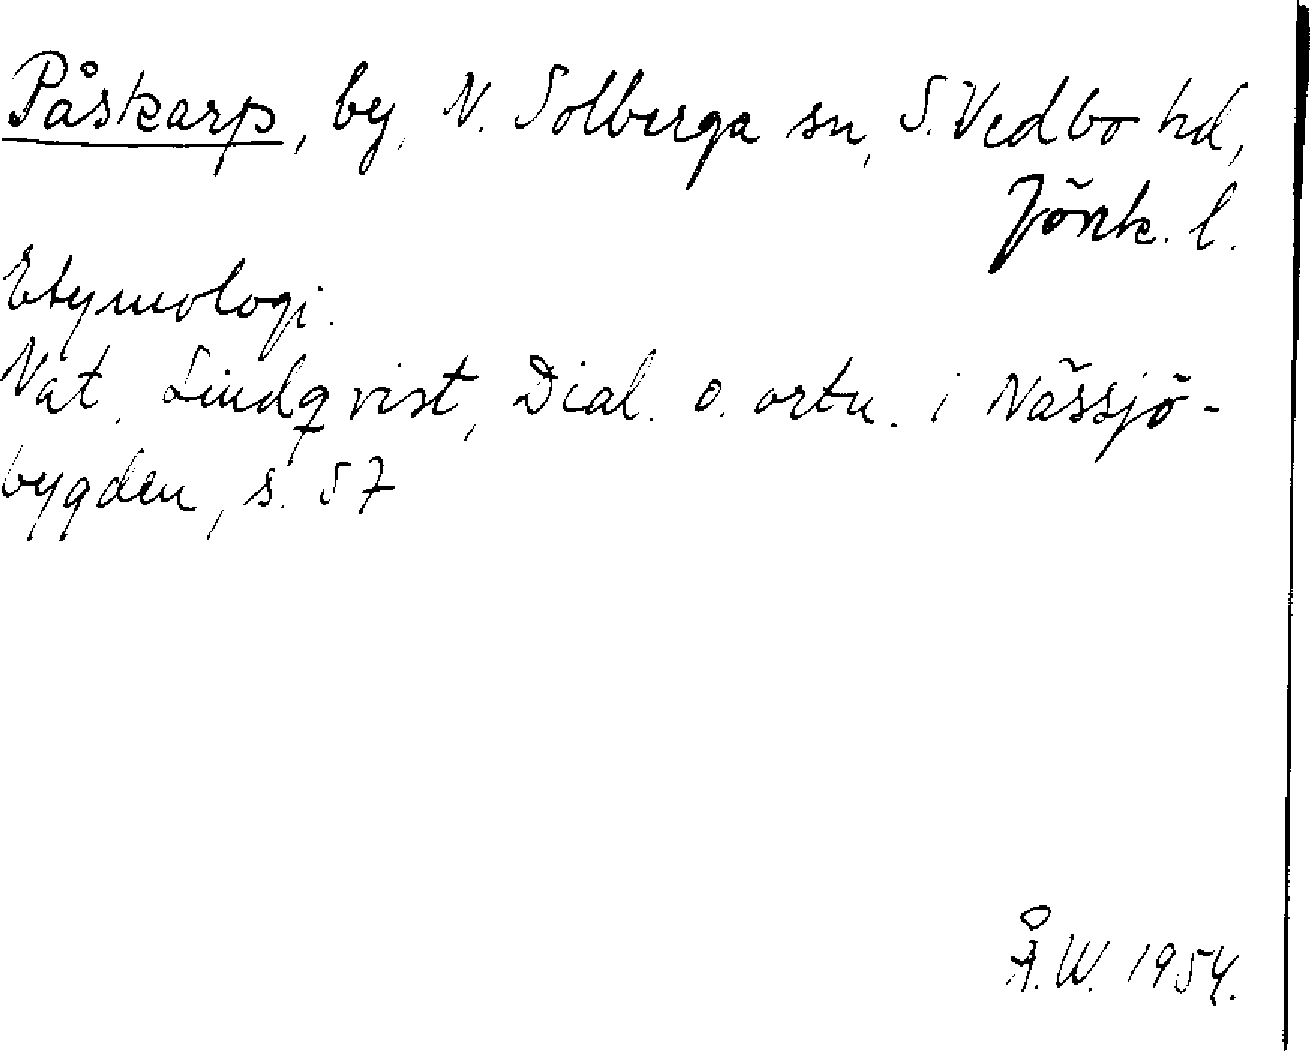 Påskarp, by, N. Solberga sn, S. Vedbo hd,
Jönk. l.
Etymologi.
Nat. Lindqvist, Dial. o. ortn. i Nässjö-
bygden, s. 57
Å.W. 1954.